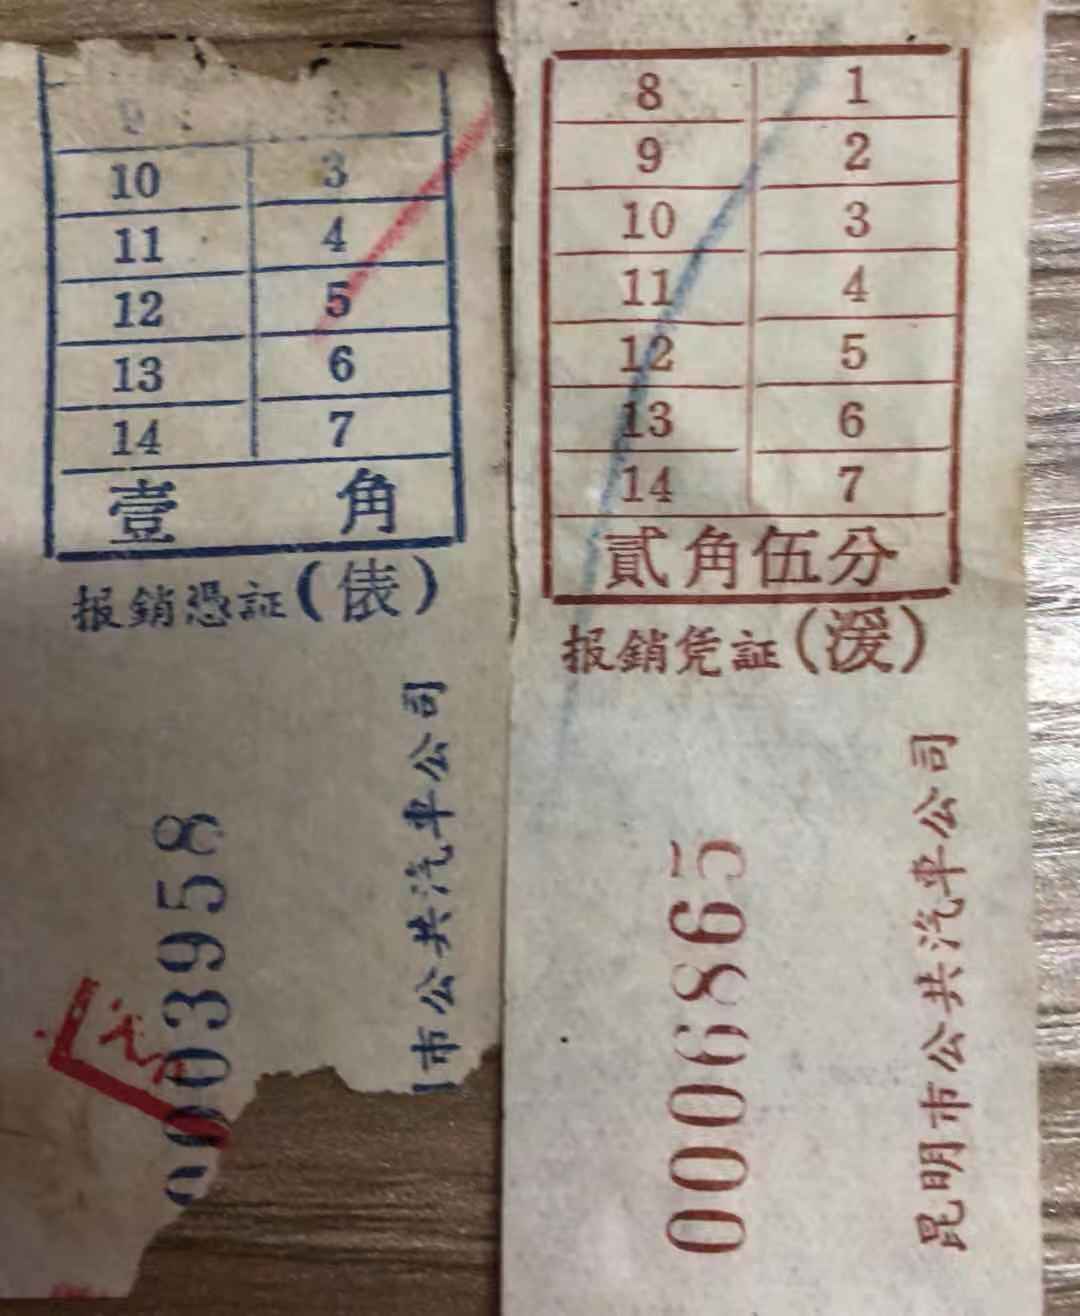 10 3
11 4
12 5
13 6
14 7
壹 角
报銷憑証(俵)
市公共汽車公司
0003958
8 1
9 2
10 3
11 4
12 5
13 6
14 7
貳角伍分
报銷凭証(湲)
昆明市公共汽車公司
0006865